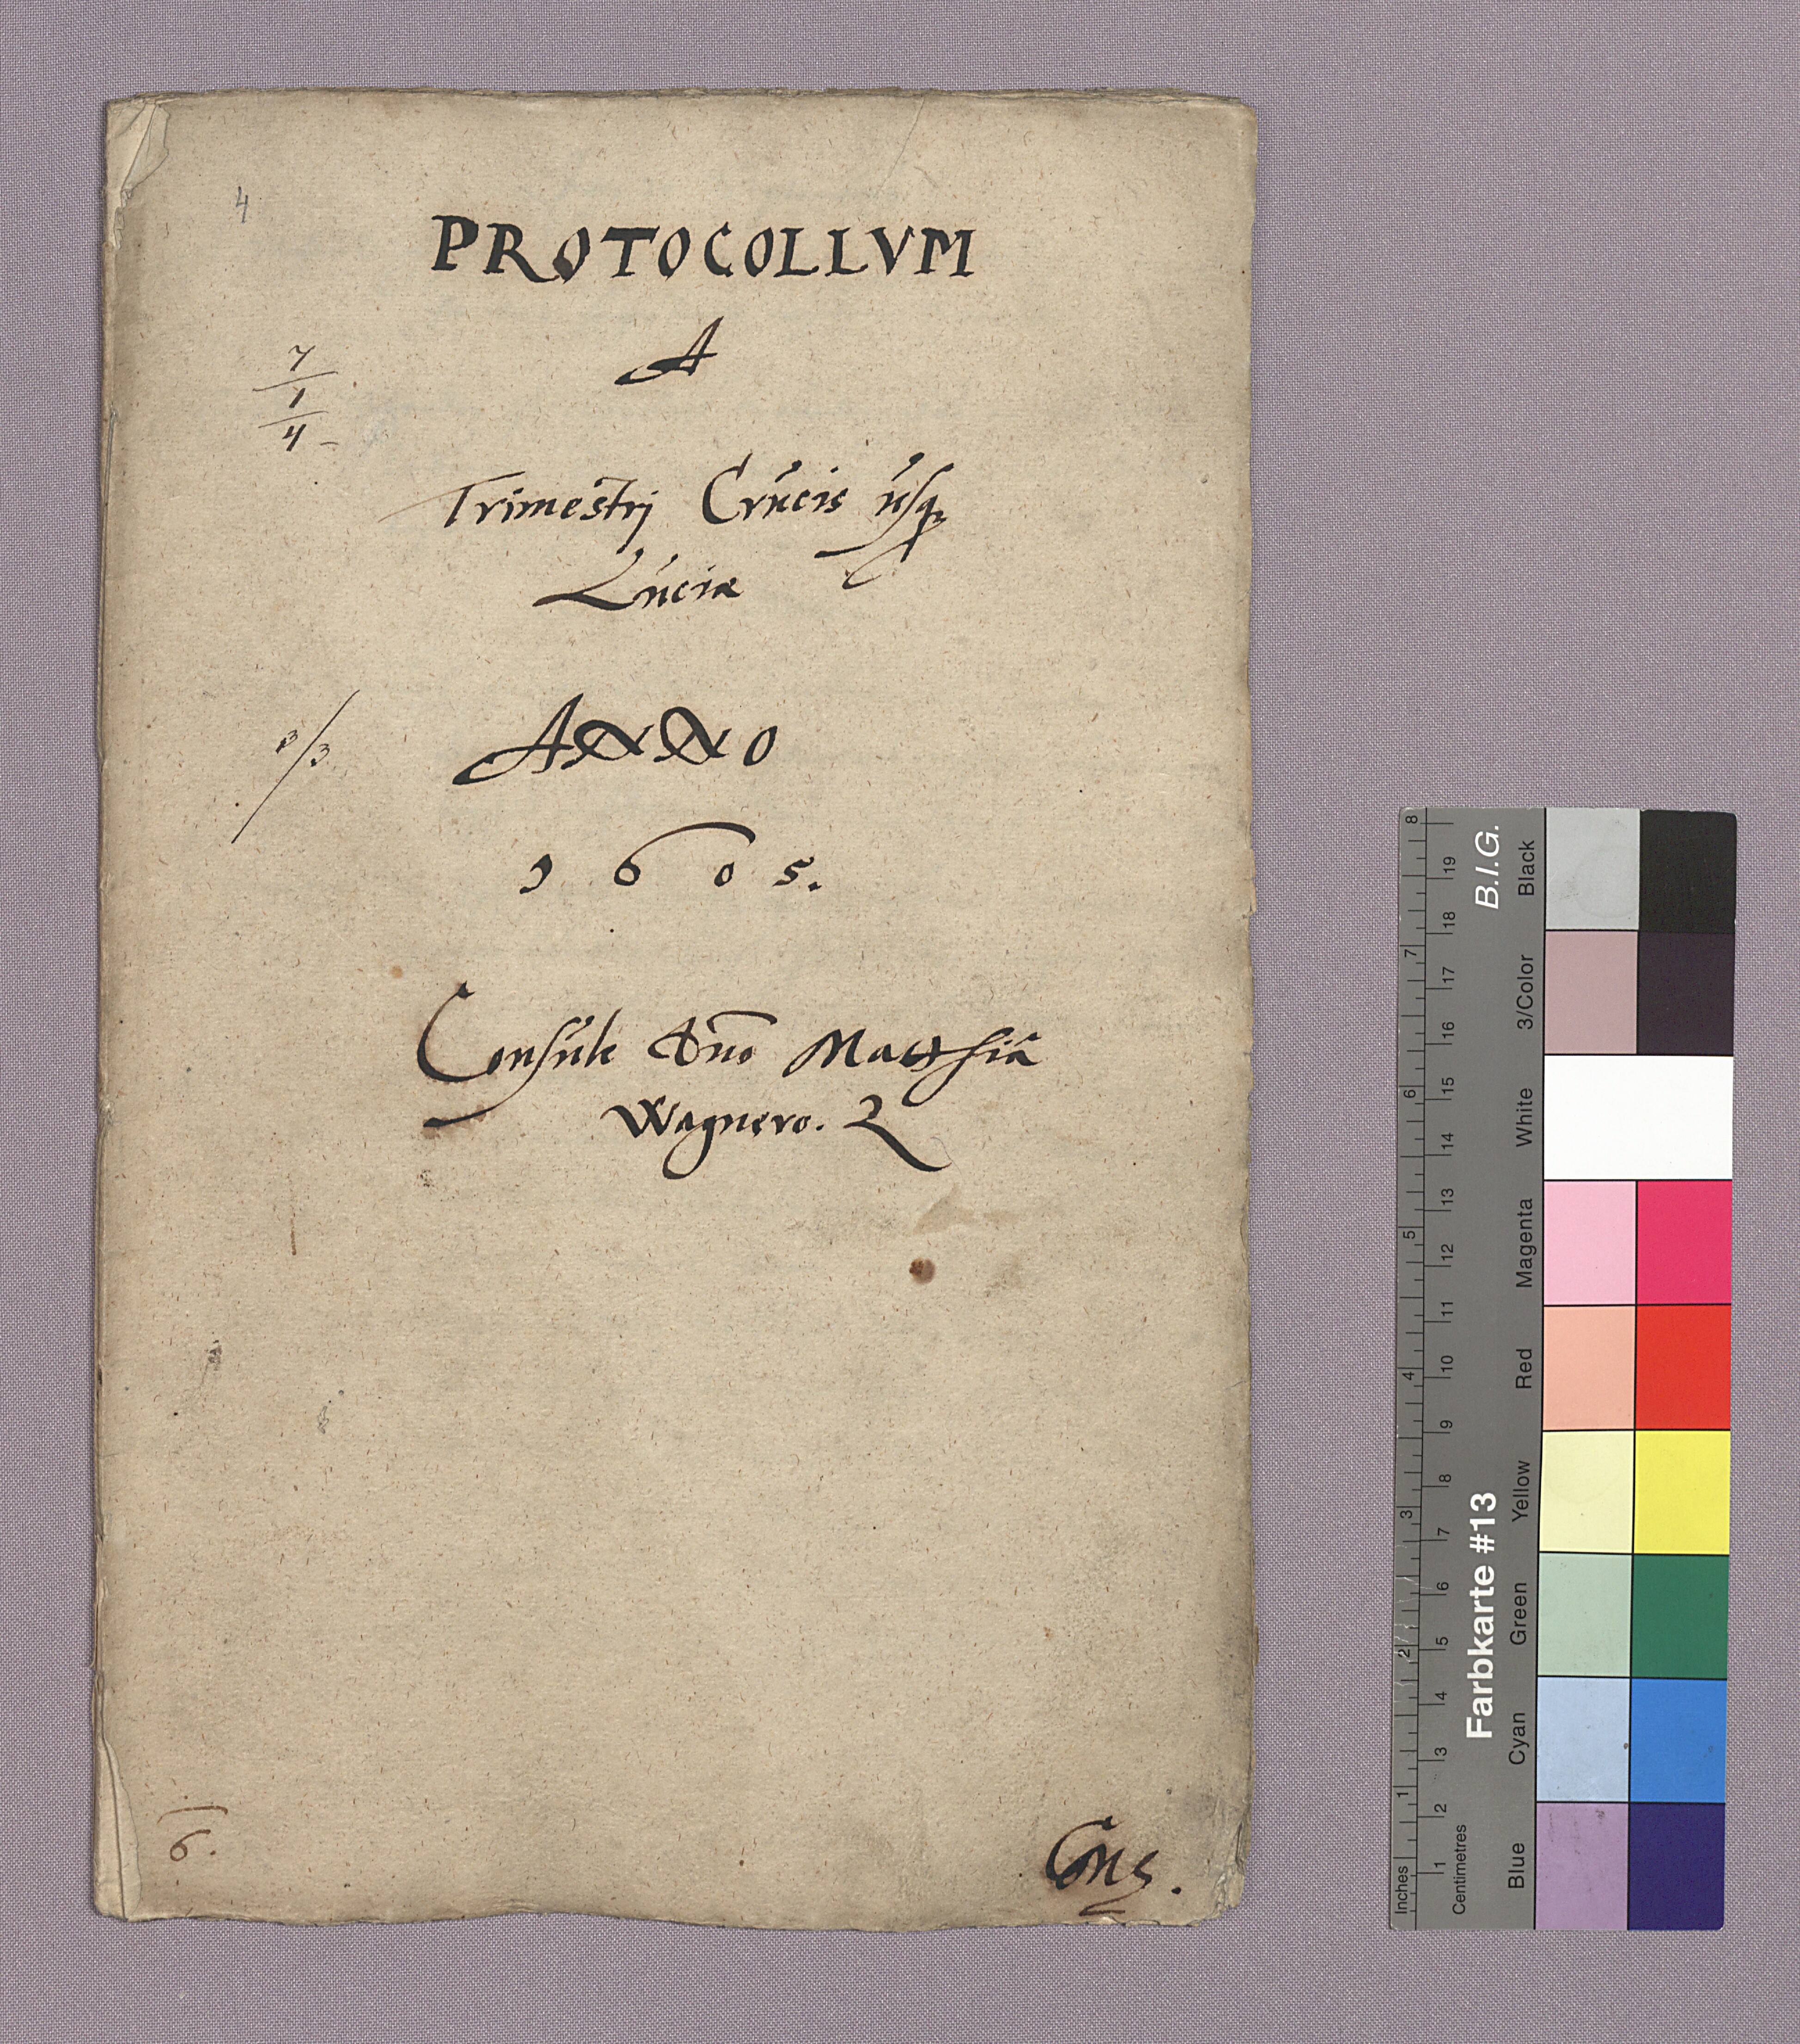 4
PROTOCOLLVM
A
7
1
4
Trimestrj Crucis usq₃
Luciæ
ANNO
3/3
1605.
Consule Dno Matthia
Wagnero.
6.
Cons.
8 7 6 5 4 3 2 1 Inches
19 18 17 16 15 14 13 12 11 10 9 8 7 6 5 4 3 2 1 Centimetres
Farbkarte #13 B.I.G.
Blue Cyan Green Yellow Red Magenta White 3/Color Black